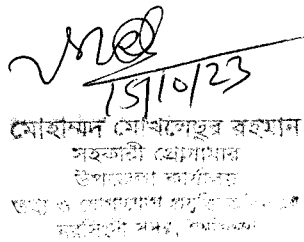 15/10/23
মোহাম্মদ মোখলেছুর রহমান
সহকারী প্রোগ্রামার
উপজেলা কার্যালয়
তথ্য ও যোগাযোগ প্রযুক্তি
সদর,